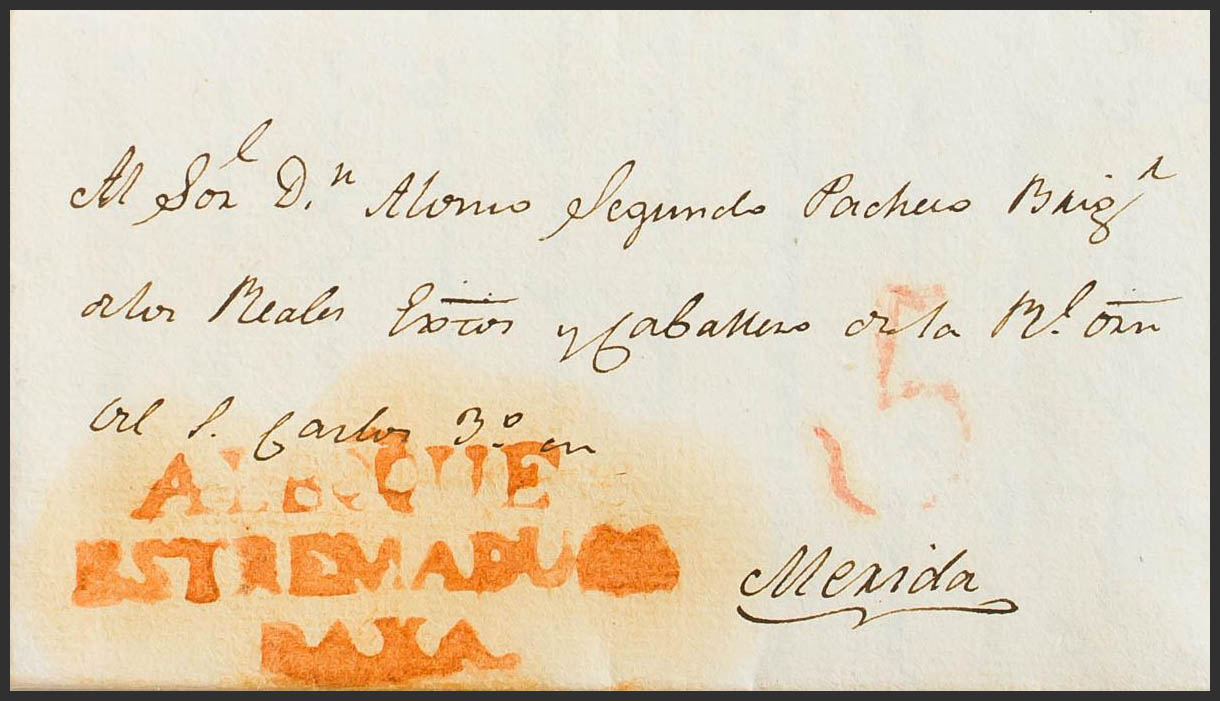 Al Sor.l D.n Alonso Segundo Pacheco Brig.r
delos Reales Extos y Caballero de la Rl. orn
del S. Carlos 3.º en
ALBQUE
ESTREMADURA
BAXA
5
Merida